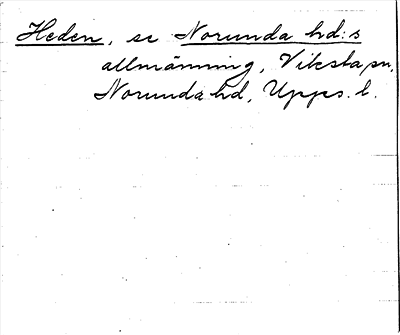 Heden, se Norunda hd:s
allmänning, Viksta sn,
Norunda hd, Upps. l.